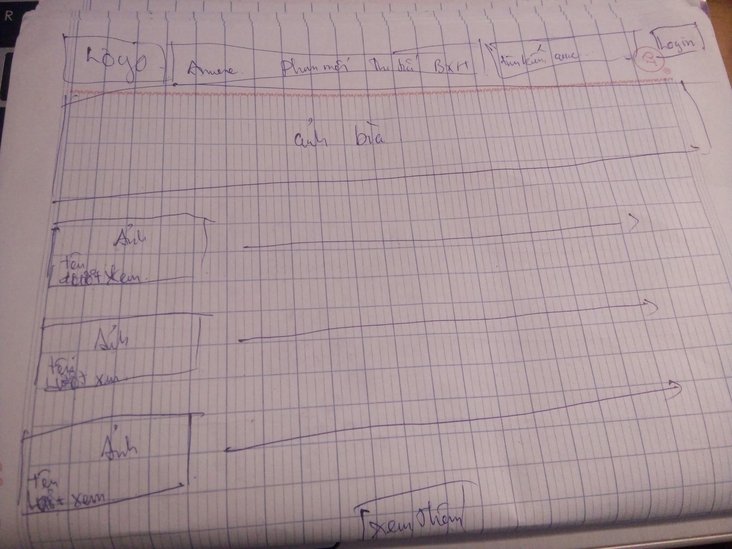 Logo Anime Phim mới Thể loại BXH tìm kiếm Login
ảnh bìa
Ảnh
tên
lượt xem
Ảnh
tên
lượt xem
Ảnh
tên
lượt xem
Xem thêm